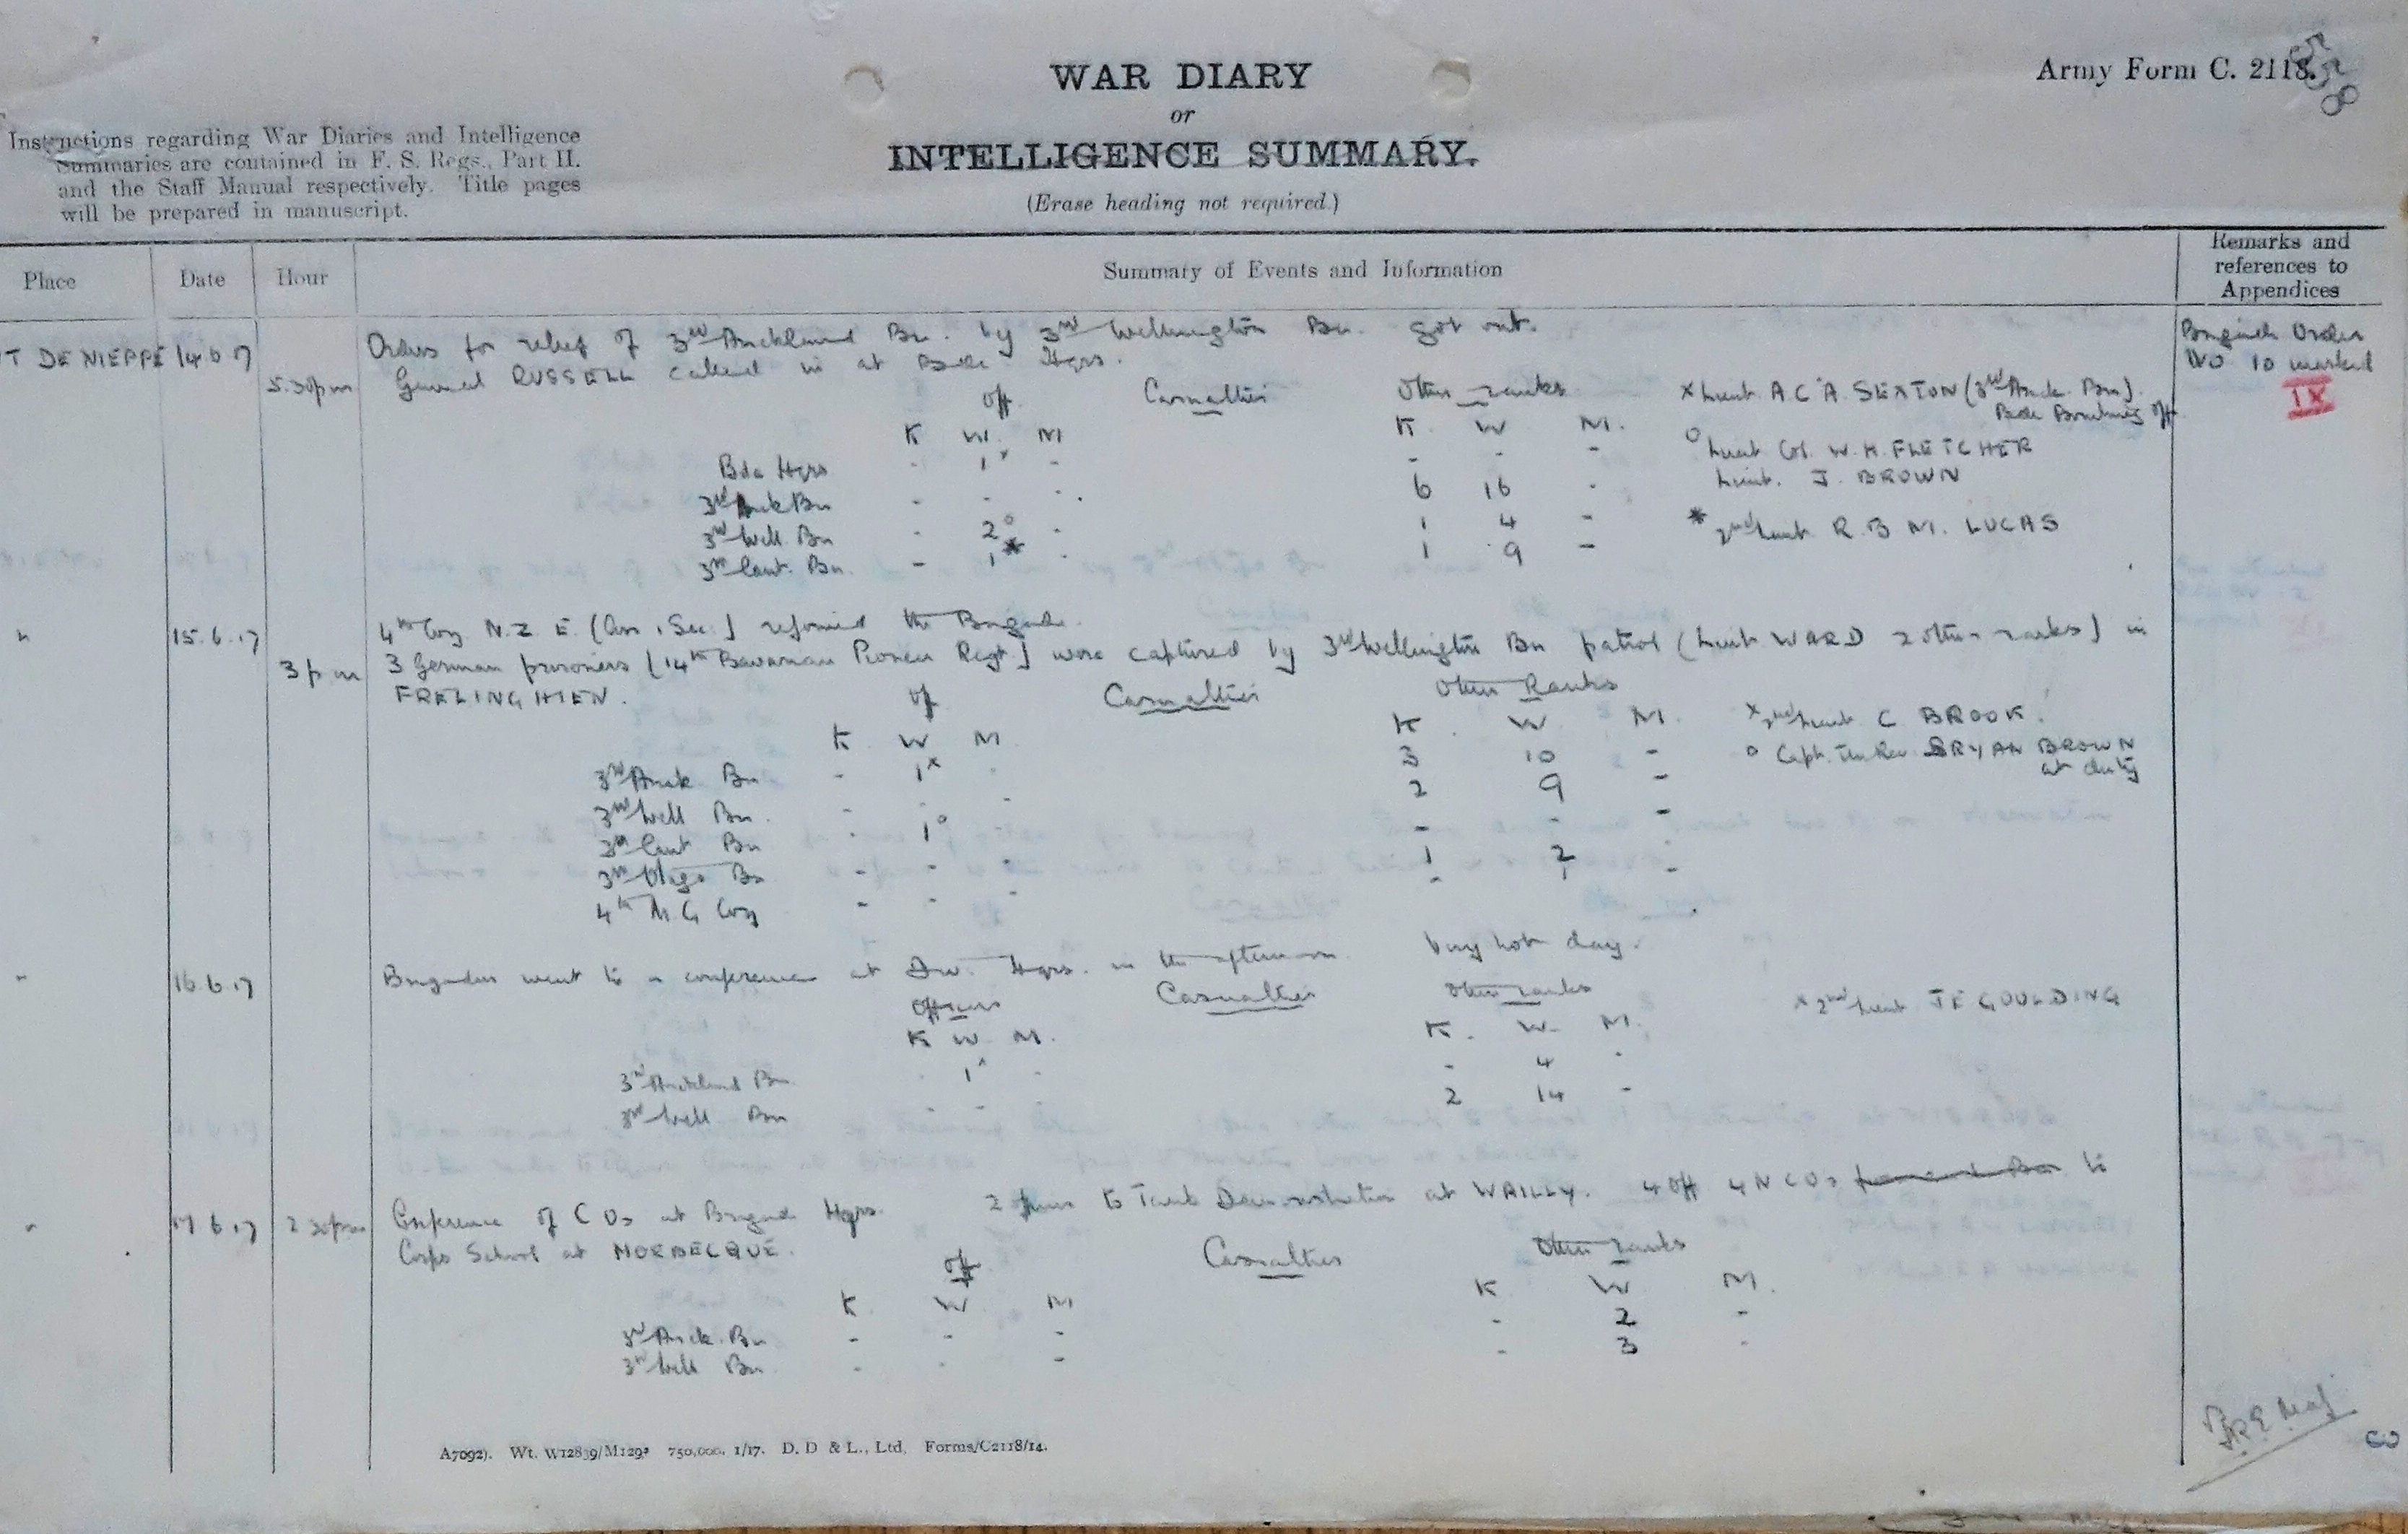 WAR DIARY
or
INTELLIGENCE SUMMARY.
(Erase heading not required.)
Army Form C. 2118.
558
Instructions regarding War Diaries and Intelligence
Summaries are contained in F. S. Regs., Part II.
and the Staff Manual respectively. Title pages
will be prepared in manuscript.
Place Date Hour Summary of Events and Information Remarks and references to Appendices
T DE NIEPPE 14 6 17 Orders for relief of 3rd Auckland Bn. by 3rd Wellington Bn. got out. Brigade Order
No 10 marked
IX
5.30pm General RUSSELL called in at Bde Hqrs.
Off. Casualties Other ranks
K W. M K. W M.
Bda Hqrs - 1x - - - -
3rd Auck Bn - - - 6 16 -
3rd Well. Bn - 2o - 1 4 -
3rd Cant. Bn. - 1* - 1 9 -
x Lieut. A C A. SEXTON (3rd Auck. Bn).
Bde Bombing Off
o Lieut Col. W. H. FLETCHER
Lieut. J. BROWN
* 2nd Lieut R. B M. LUCAS
" 15. 6. 17 4th Coy N. Z. E. (less 1 Sec.) rejoined the Brigade.
3 pm 3 German prisoners (14th Bavarian Pioneer Regt.) were captured by 3rd Wellington Bn patrol (Lieut WARD 2 other ranks) in
FRELINGHIEN.
Off Casualties Other Ranks
K. W M K. W M.
3rd Auck Bn - 1x - 3 10 -
3rd Well Bn. - - - 2 9 -
3rd Cant Bn - 1o - - -
3rd Otago Bn - - - 1 2 -
4th M. G Coy - - - - -
x 2nd Lieut C BROOK.
o Capt. The Rev BRYAN BROWN
at duty
" 16. 6. 17 Brigadier went to a conference at Div. Hqrs. in the afternoon. Very hot day.
Officers Casualties Other ranks
K W. M. K. W. M.
3rd Auckland Bn - 1x - - 4 -
3rd Well Bn - - - 2 14 -
x 2nd Lieut J E GOULDING
" 17 6. 17 2 30pm Conference of C Os at Brigade Hqrs. 2 to Tank Demonstration at WAILLY. 4 Off 4 N C Os to
Corps School at MORBECQUE.
Off Casualties Other ranks
K. W M K W M.
3rd Auck. Bn - - - - 2 -
3rd Well Bn. - - - - 3 -
A7092). Wt. W12839/M1293 750,000. 1/17. D. D & L., Ltd, Forms/C2118/14.